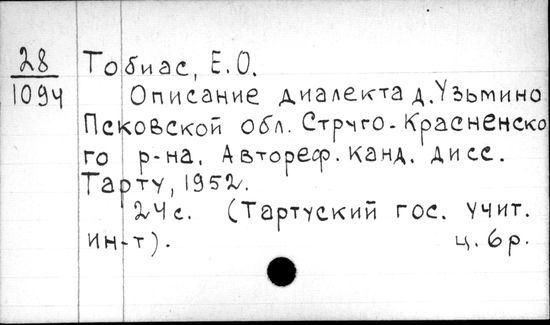 28
1094
Тобиас, Е.О.
Описание диалекта д. Узьмино
Псковской обл. Струго-Красненско
го р-на. Автореф. канд. дисс.
Тарту, 1952.
24 с. (Тартуский гос. учит.
ин-т). ц. 6 р.